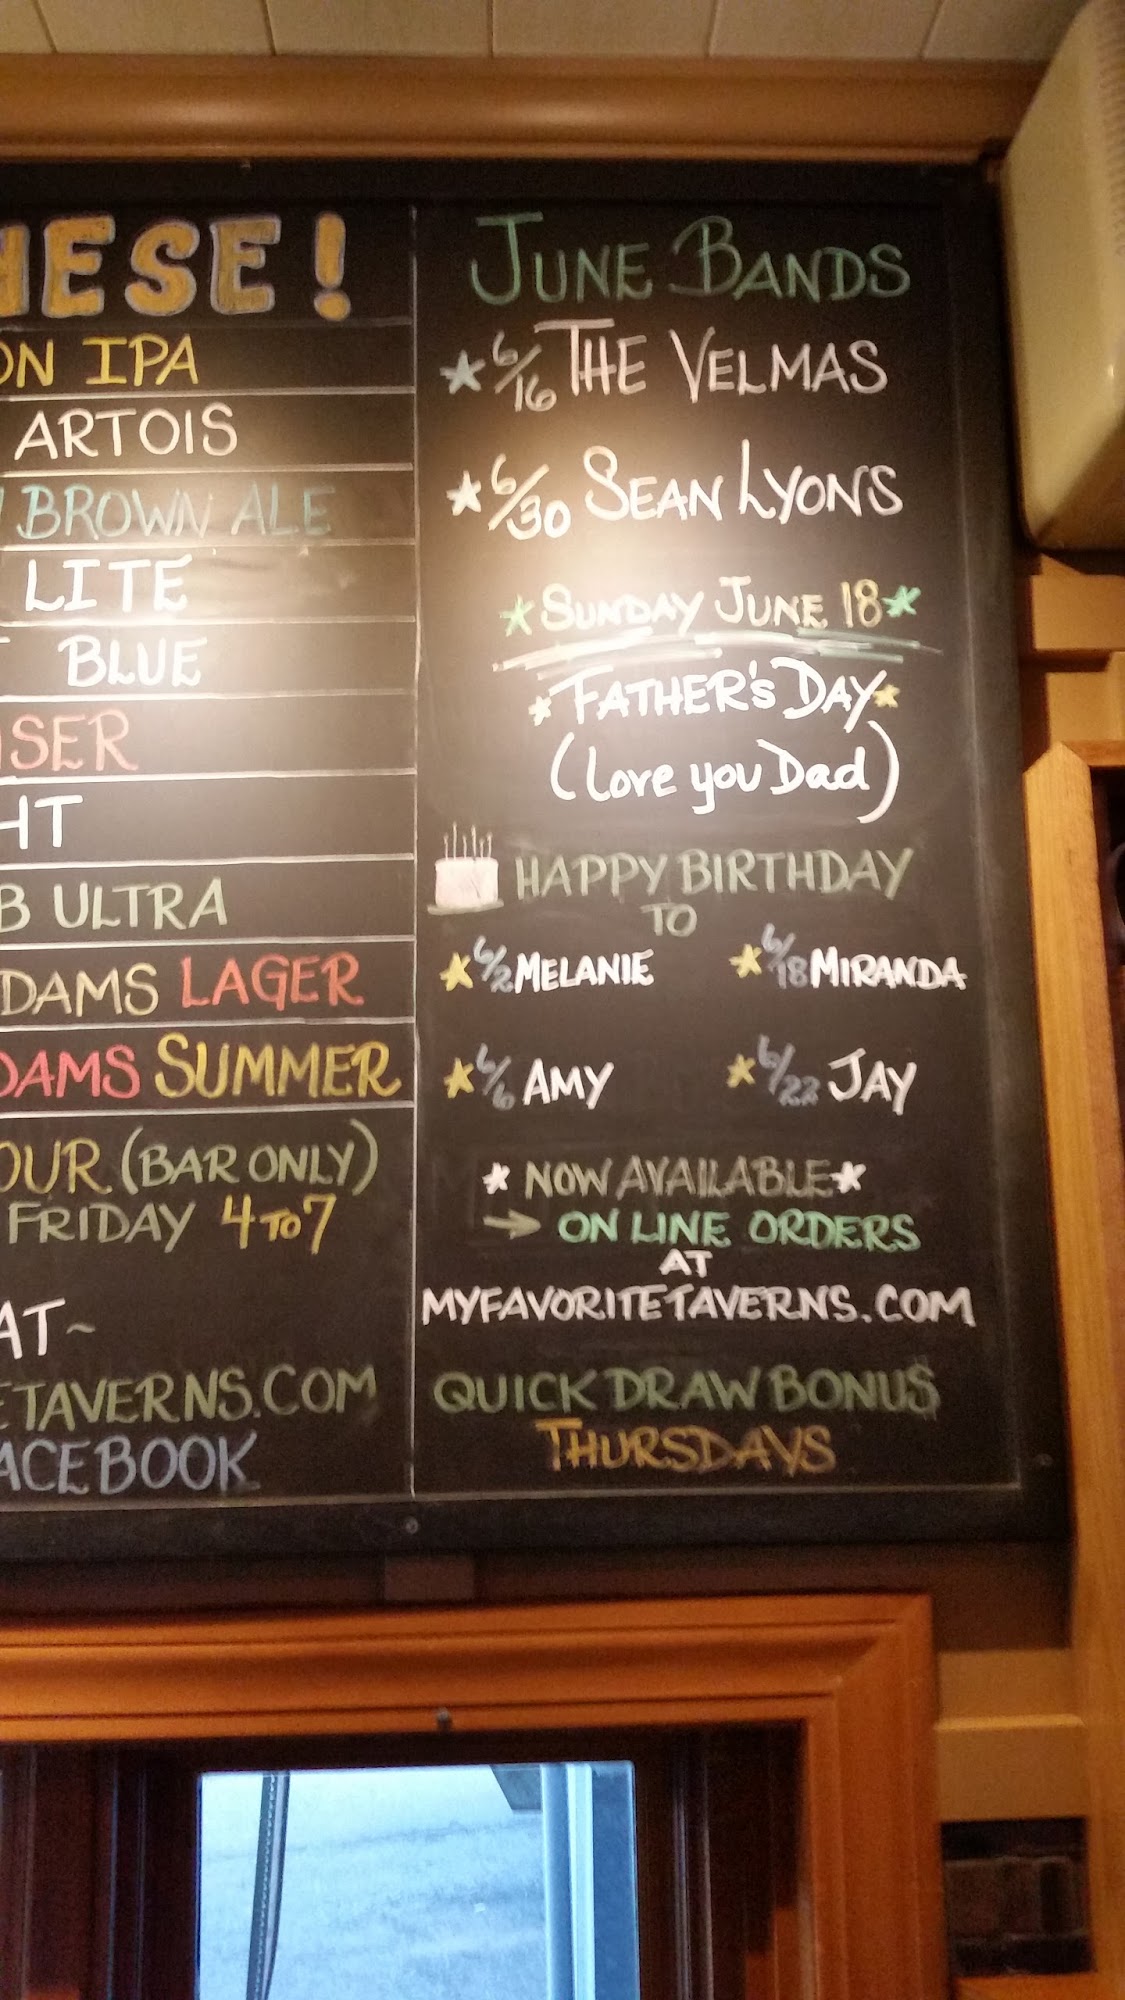 HESE!
ON IPA
ARTOIS
BROWN ALE
LITE
BLUE
ISER
HT
B ULTRA
DAMS LAGER
DAMS SUMMER
OUR (BAR ONLY)
FRIDAY 4 TO 7
AT~
ETAVERNS.COM
ACEBOOK
JUNE BANDS
6/16 THE VELMAS
6/30 SEAN LYONS
SUNDAY JUNE 18
FATHER'S DAY
(Love you Dad)
HAPPY BIRTHDAY
TO
6/2 MELANIE 6/18 MIRANDA
6/6 AMY 6/22 JAY
NOW AVAILABLE
→ ON LINE ORDERS
AT
MYFAVORITETAVERNS.COM
QUICK DRAW BONU$
THURSDAYS